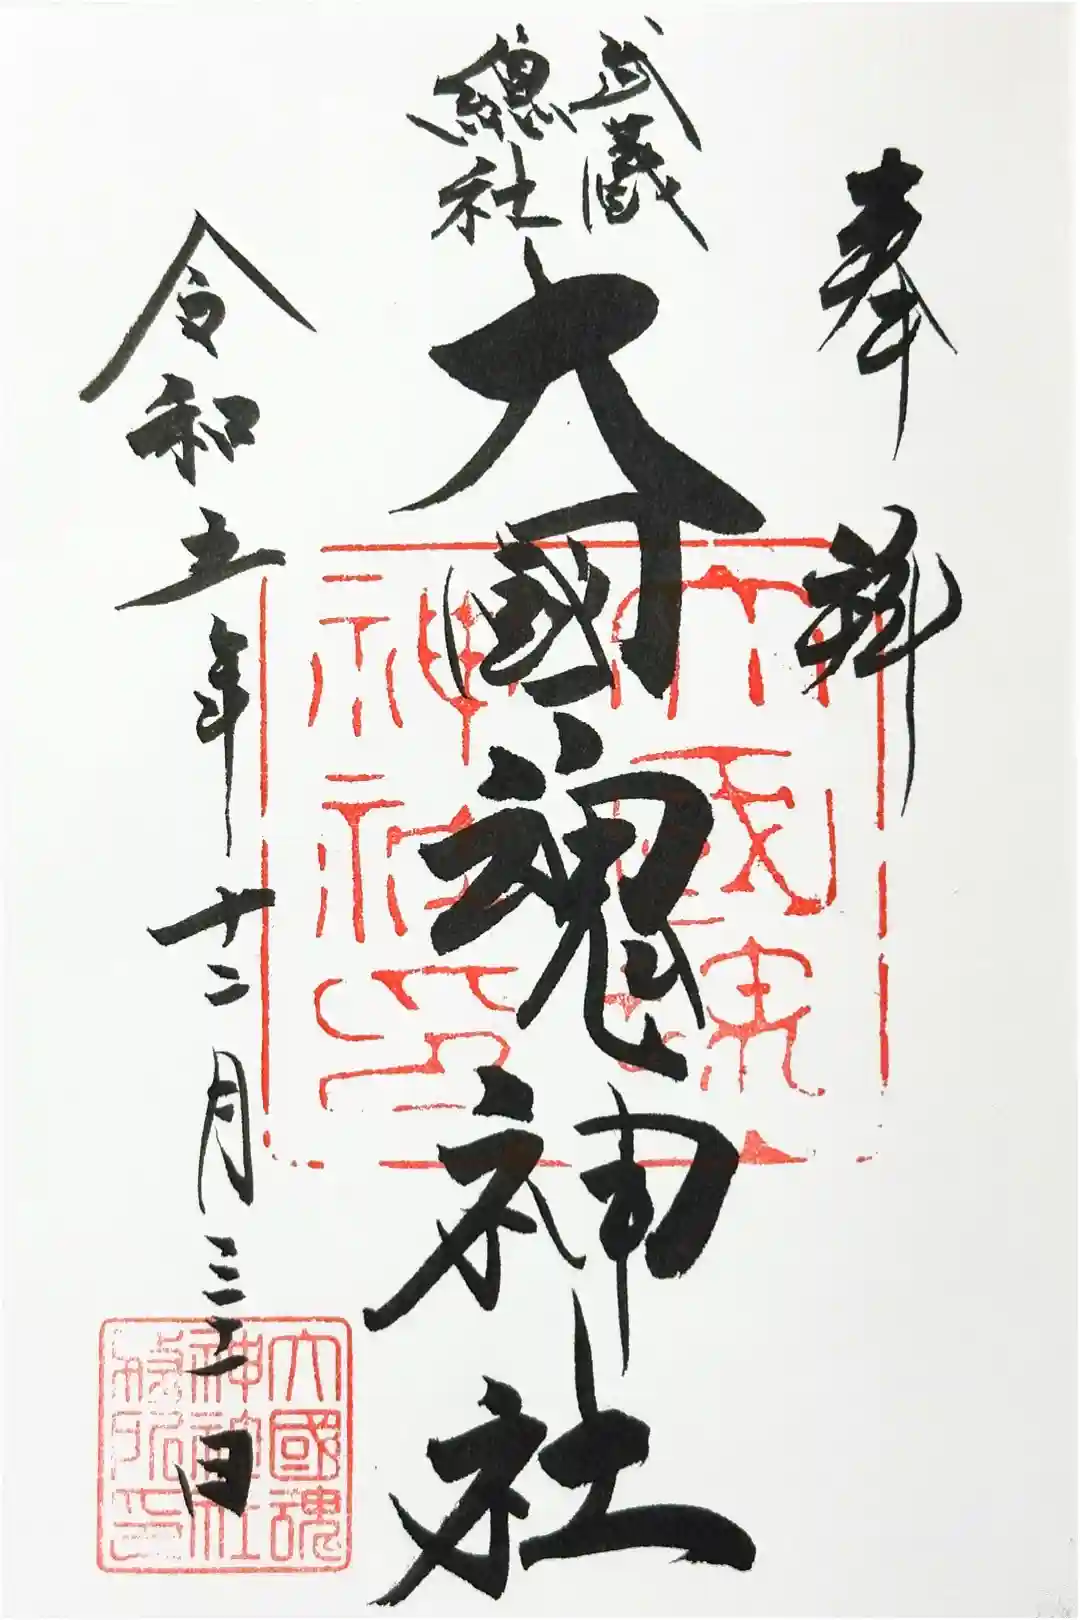 奉拝
武蔵
總社
大國魂神社
令和五年十二月三十一日
大國魂
神社印
大國魂
神社社
務所印